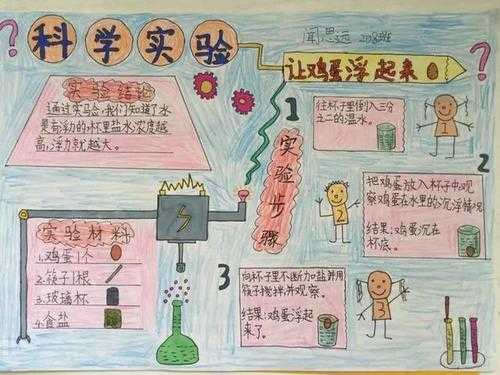 科学实验
闻思远 208班
让鸡蛋浮起来
实验结论
通过实验,我们知道了水
是有浮力的杯里盐水浓度越
高,浮力就越大。
实验材料
1.鸡蛋1个
2.筷子1根
3.玻璃杯
4.食盐
实验步骤
1
往杯子里倒入三分
之二的温水。
2
把鸡蛋放入杯子中观
察鸡蛋在水里的沉浮情况
结果:鸡蛋沉在
杯底。
3
向杯子里不断加盐并用
筷子搅拌并观察。
结果:鸡蛋浮起
来了。
1
2
3